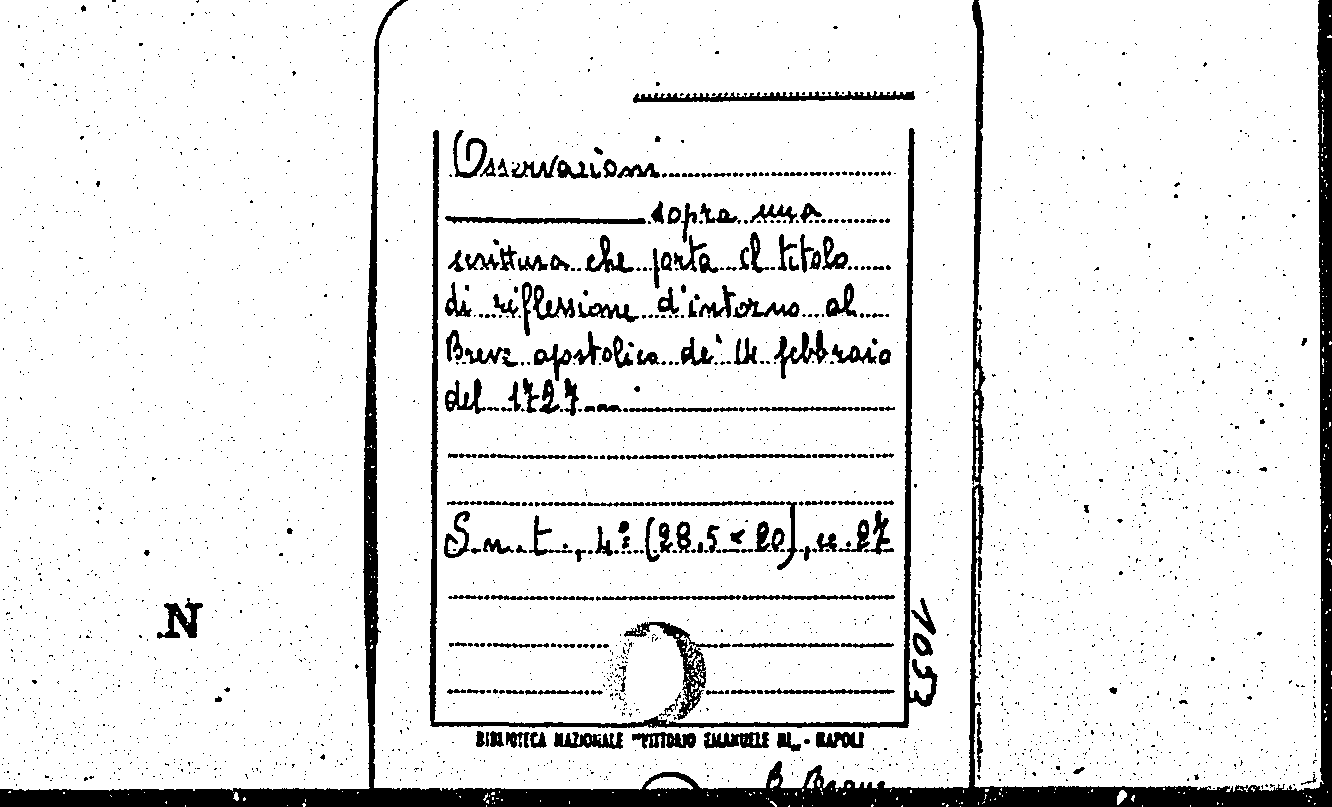 Osservazioni
sopra una
scrittura che porta il titolo
di riflessione d'intorno al
Breve apostolico de' 14 febbraio
del 1727....
S.n.t., 4º (28,5 × 20), cc. 27
1053
N
BIBLIOTECA NAZIONALE "VITTORIO EMANUELE III" - NAPOLI
B.